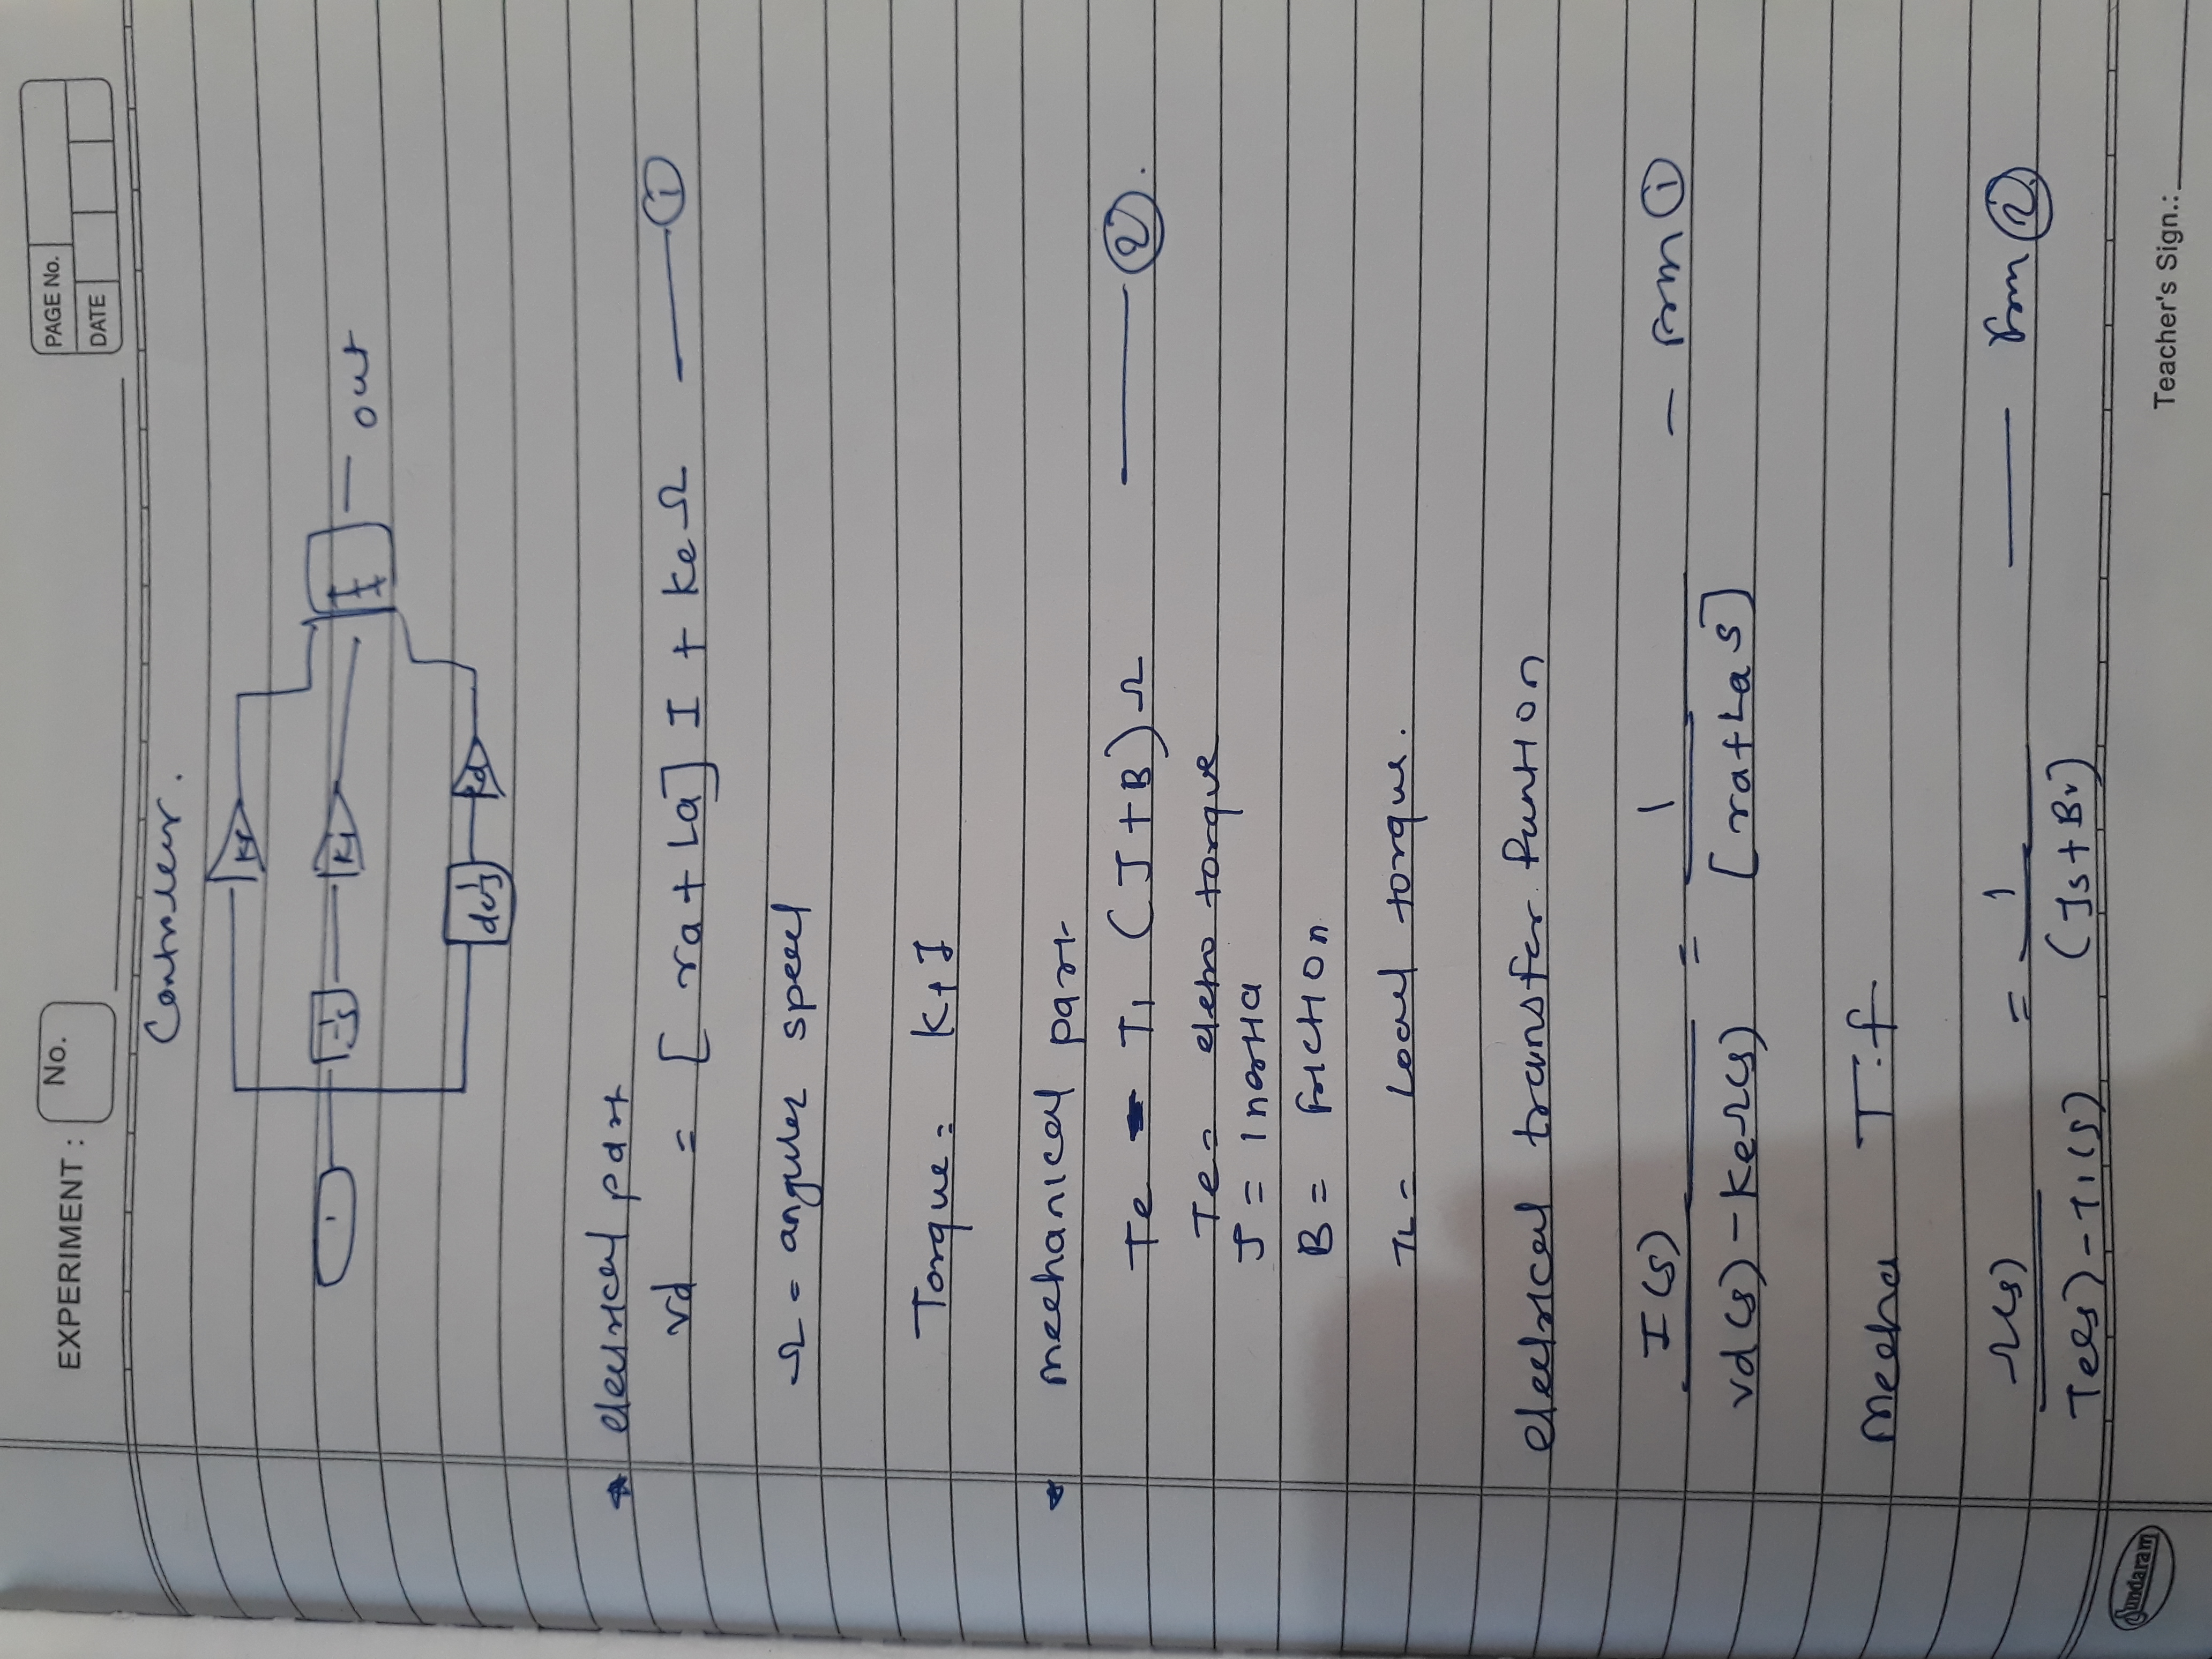 EXPERIMENT : No.
PAGE No.
DATE
Controller.
1
1/s Ki out
du/s Kd
electrical part
vd = [ ra + La ] I + Ke Ω — ①
Ω = angular speed
Torque = Kt I
mechanical part
Te - T1 (J + B) Ω — ②.
Te = torque
J = Inertia
B = friction
TL = Load torque.
electrical transfer funtion
I(s) / vd(s) - KeΩ(s) = 1 / [ra + La S] - from ①
Mecha T.f
Ω(s) / Te(s) - T1(s) = 1 / (Js + Bv) — from ②
Sundaram
Teacher's Sign.: